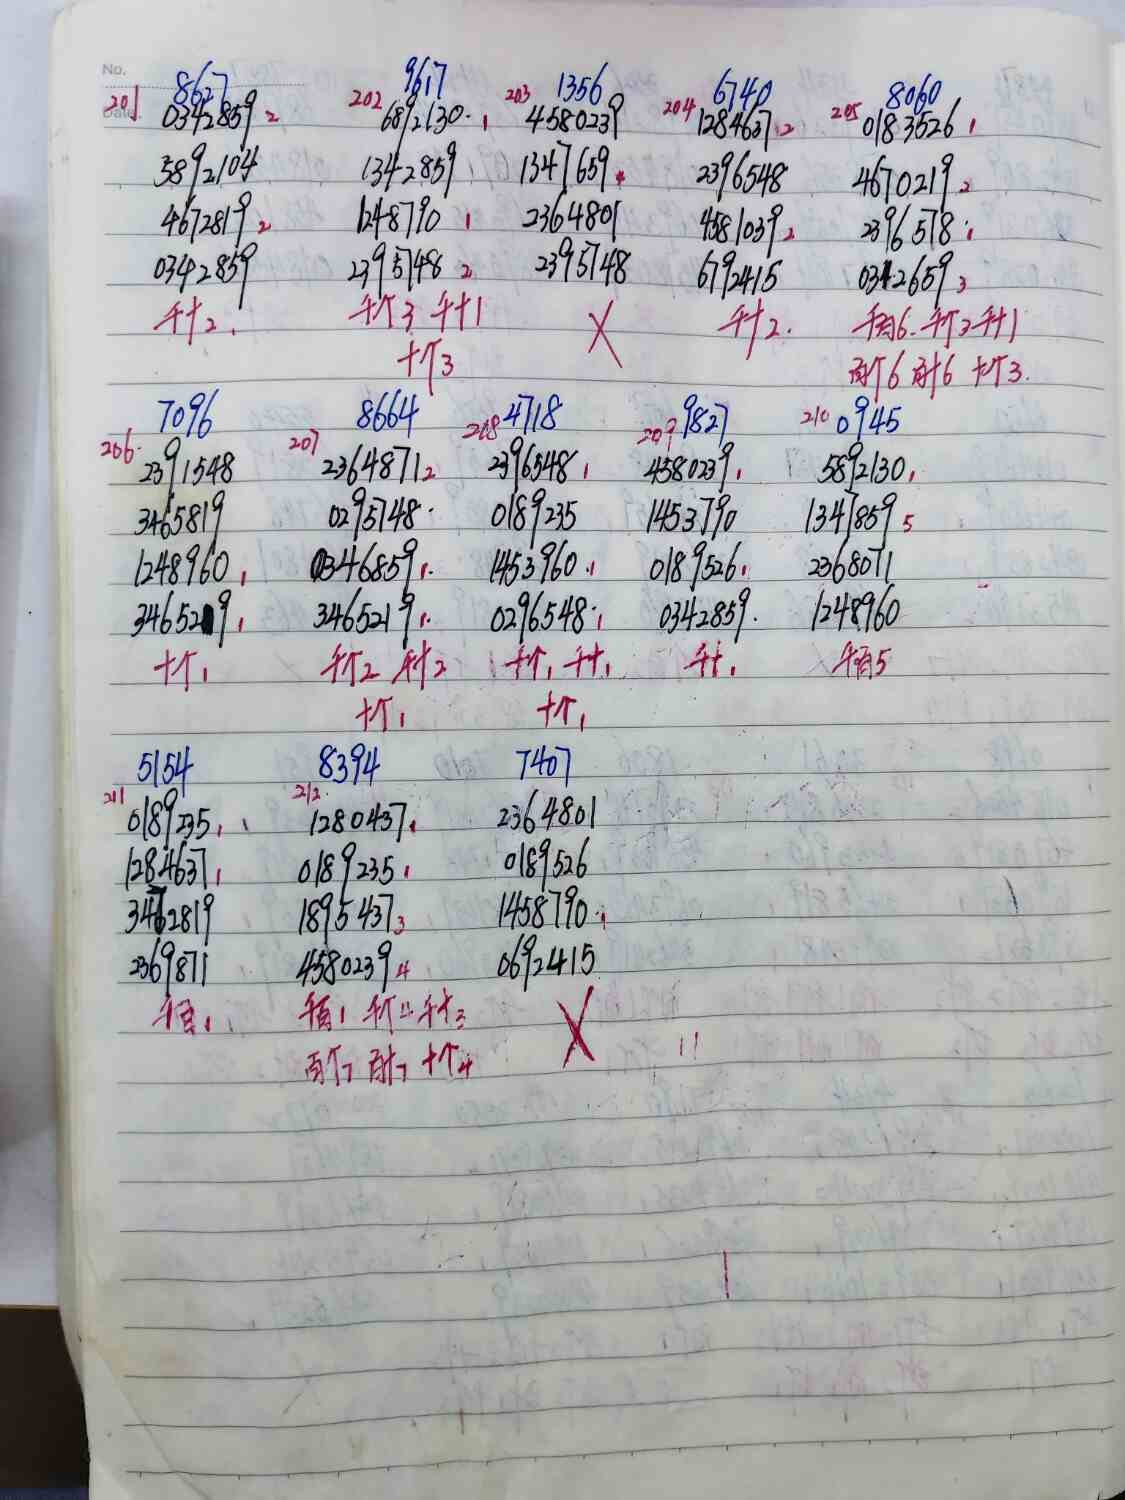 No.
8627 9617 1356 6740 8060
201 0342859 2 202 6892130. 1 203 4580239 204 1284637 2 205 0183526 1
Date
3892104 1342859 1347659 2396548 4670219 2
4672819 2 1248790 1 2364801 4581039 2 2396578 1
0342859 2395748 2 2395748 6792415 0342659 3
千十2. 千个3 千十1 X 千十2. 千百6. 千个2 千十1
十个3 百个6 百十6 十个3.
7096 8664 4718 9827 0945
206. 2391548 207 2364871 2 208 2396548 1 209 4580239 1 210 5892130 1
3465819 0295748 0189235 1453790 1347859 5
1248960 1 0346859 1. 1453960. 1 0189526 1 2368071
3465219 1 3465219 1. 0296548. 1 0342859. 1248960
十个1 千个2 千十2 千个1 千十1 千十1 X 千百5
十个1 十个1
5154 8394 7407
211 0189235 1 212. 1280437 2364801
1284637 1 0189235 1 0189526
3462819 1895437 3 1458790. 1
2369871 4580239 4 0692415
千百1 千百1 千个4 千十3 X
百个7 百十7 十个4